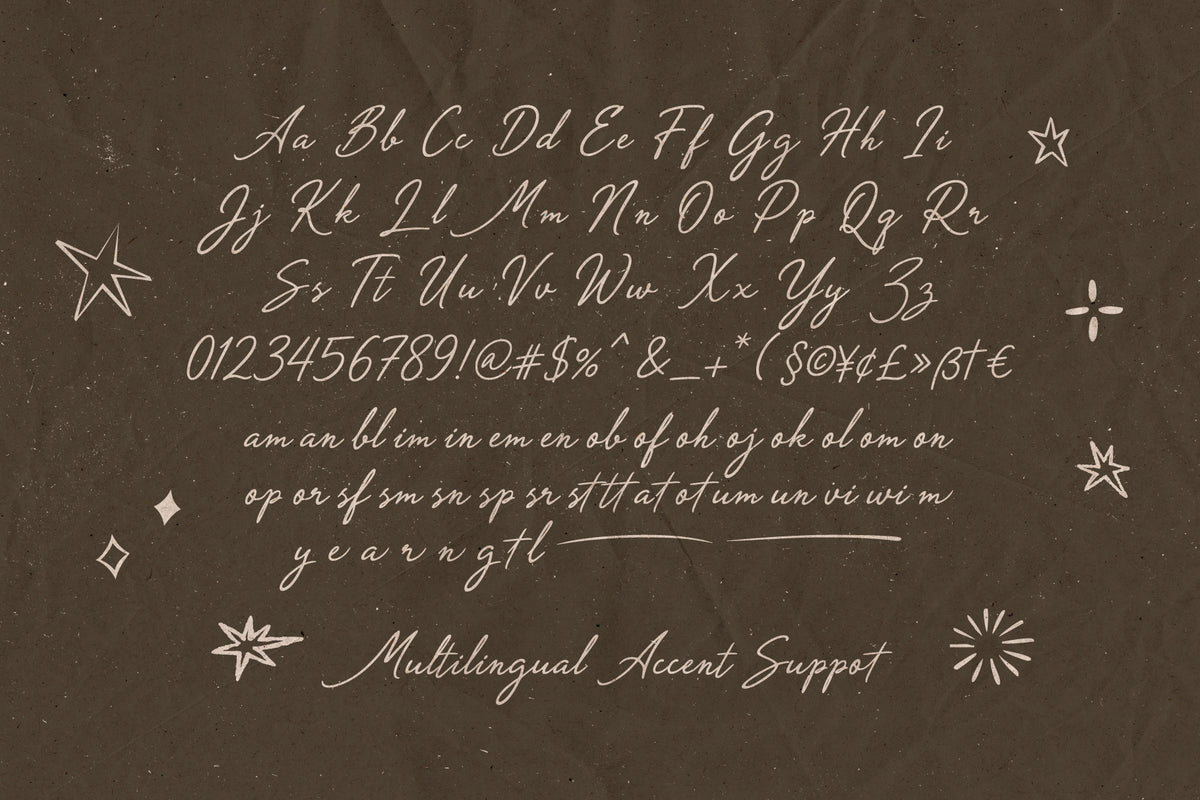 Aa Bb Cc Dd Ee Ff Gg Hh Ii
Jj Kk Ll Mm Nn Oo Pp Qq Rr
Ss Tt Uu Vv Ww Xx Yy Zz
0123456789!@#$%^&_+*(§©¥¢£»ß†€
am an bl im in em en ob of oh oj ok ol om on
op or sf sm sn sp sr st tt at ot um un vi wi m
y e a r n g t l
Multilingual Accent Suppot